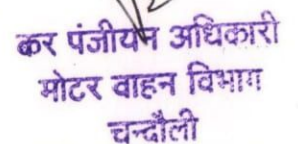 कर पंजीयन अधिकारी
मोटर वाहन विभाग
चन्दौली